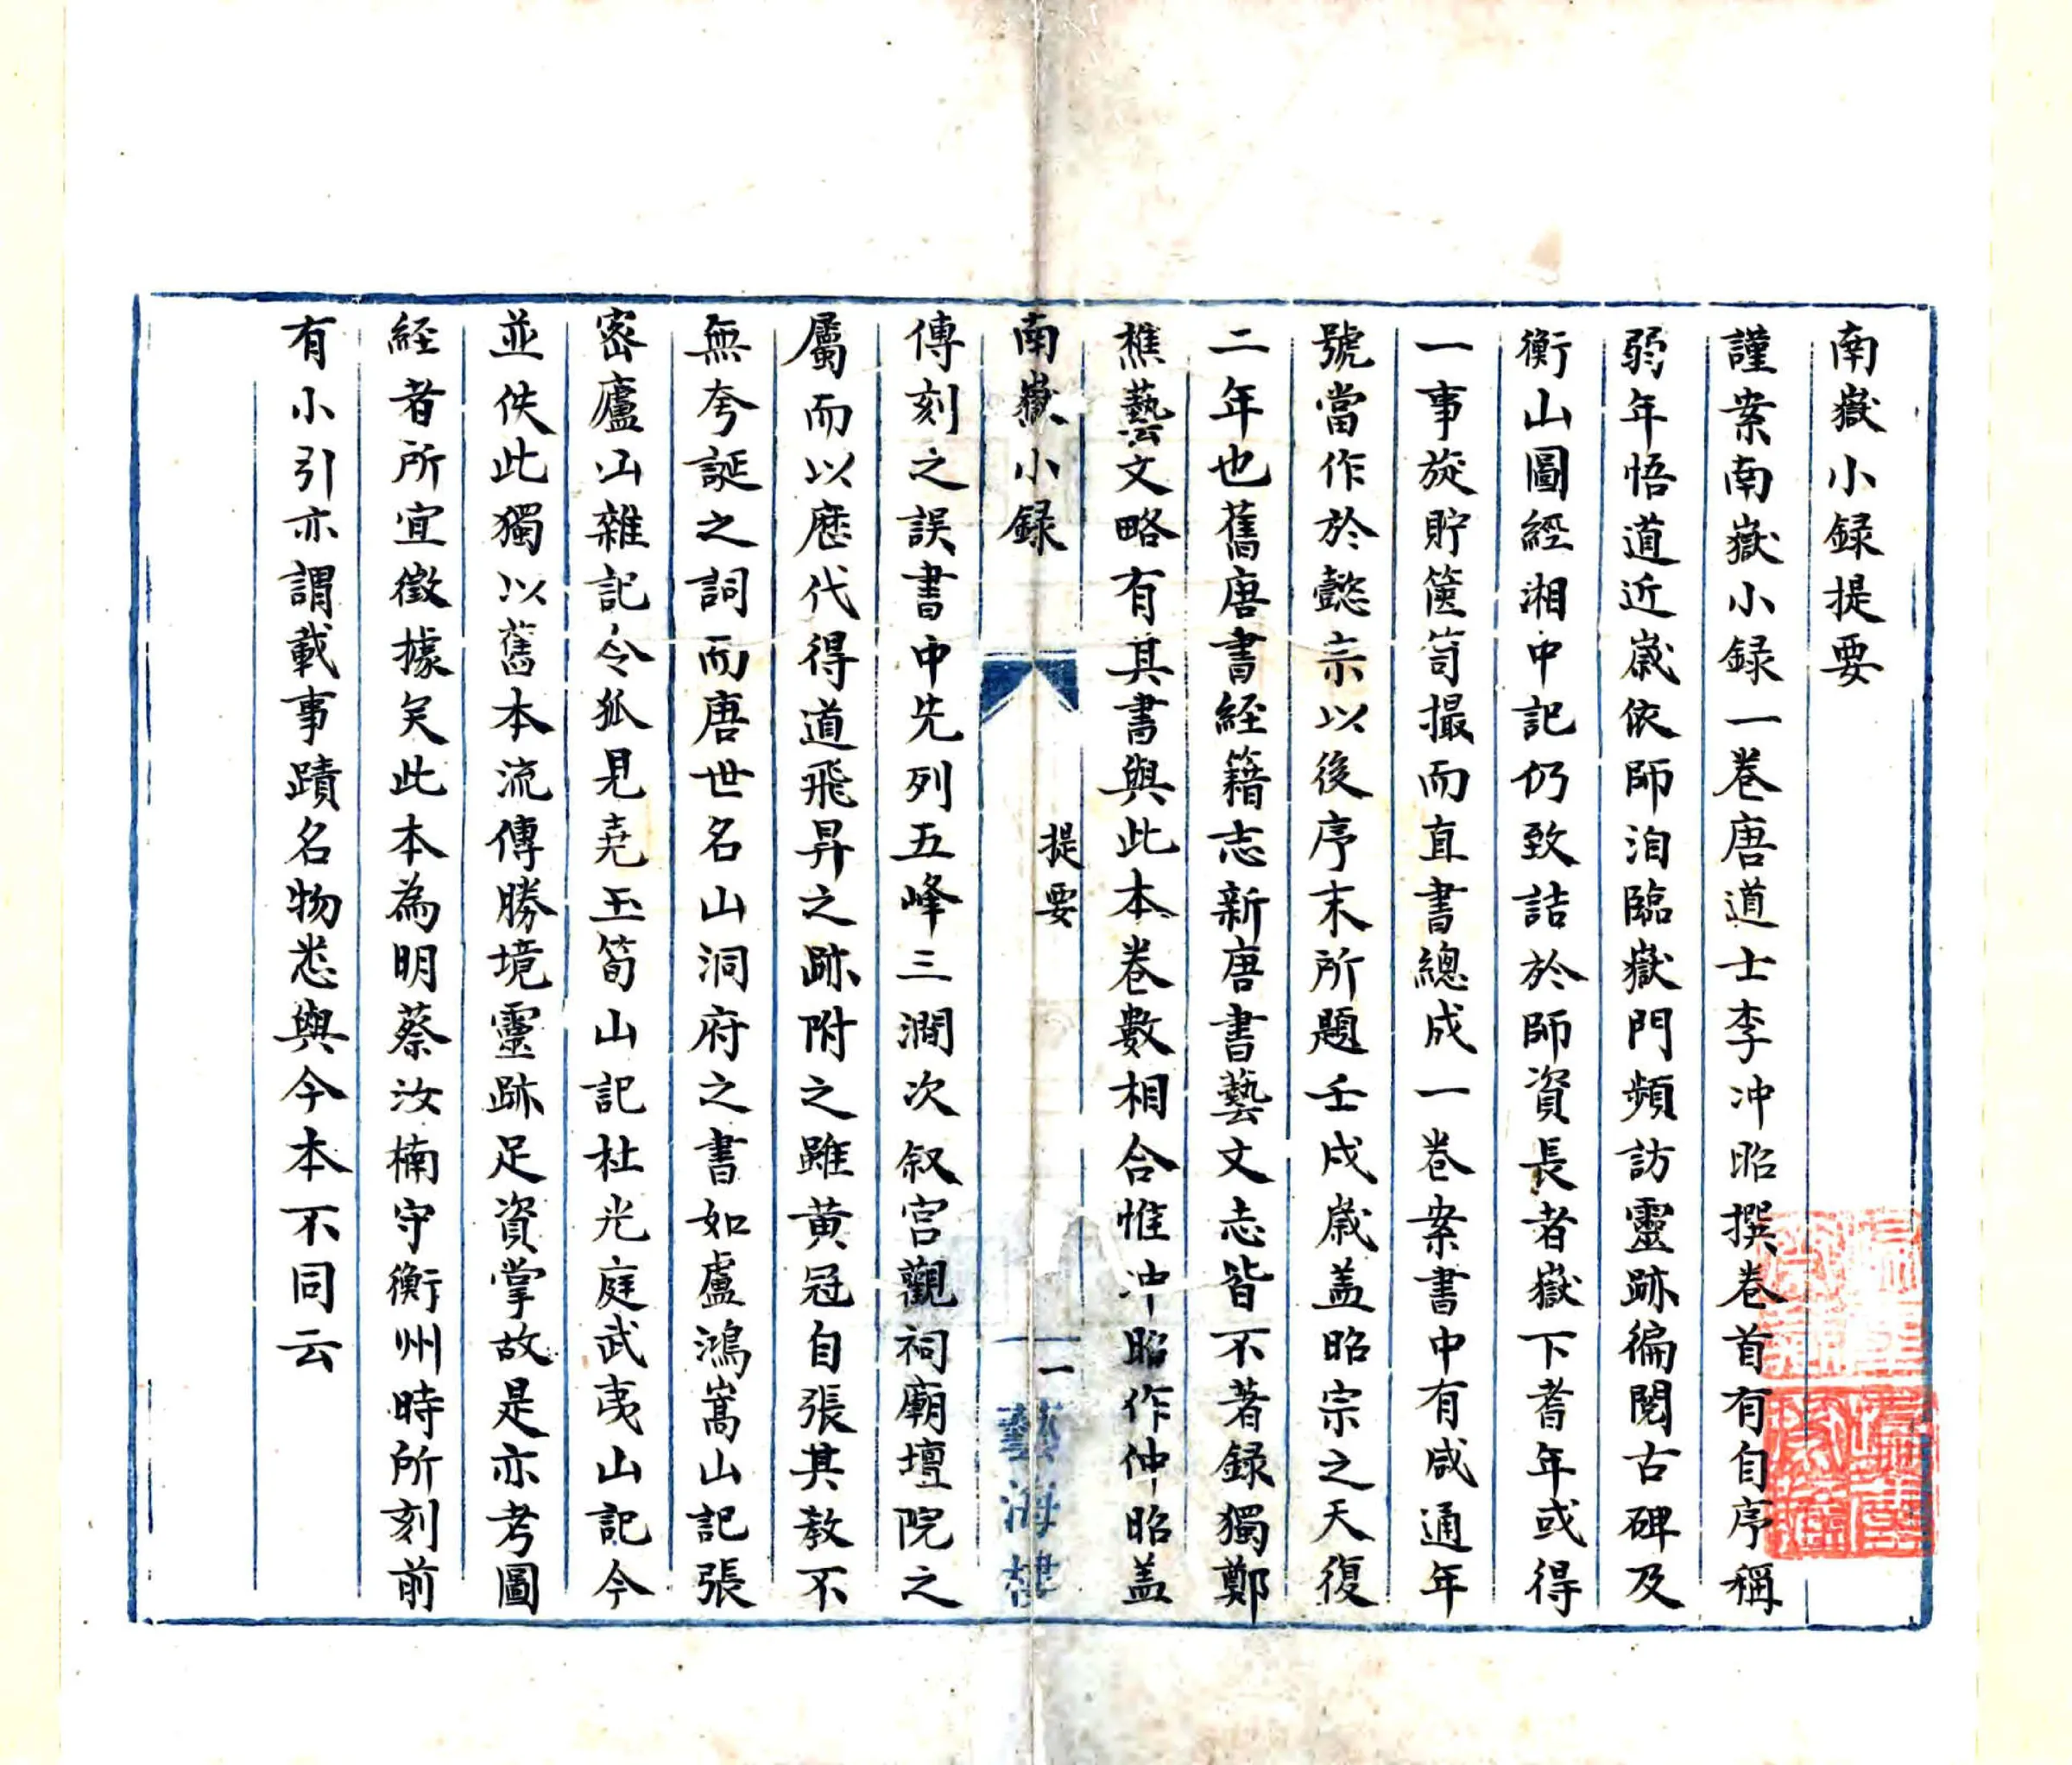 南嶽小録提要
謹案南嶽小録一巻唐道士李冲昭撰巻首有自序稱
弱年悟道近嵗依師洎臨嶽門頻訪靈跡徧閲古碑及
衡山圖經湘中記仍致詰於師資長者嶽下耆年或得
一事旋貯篋笥撮而直書總成一巻案書中有咸通年
號當作於懿宗以後序末所題壬戌嵗盖昭宗之天復
二年也舊唐書經籍志新唐書藝文志皆不著録獨鄭
樵藝文略有其書與此本巻數相合惟冲昭作仲昭盖
南嶽小録
提要
一
藝海樓
傳刻之誤書中先列五峰三澗次叙宫觀祠廟壇院之
屬而以歴代得道飛昇之跡附之雖黄冠自張其教不
無夸誕之詞而唐世名山洞府之書如盧鴻嵩山記張
密廬山雜記令狐見堯玉笥山記杜光庭武夷山記今
並佚此獨以舊本流傳勝境靈跡足資掌故是亦考圖
經者所宜徵據矣此本為明蔡汝楠守衡州時所刻前
有小引亦謂載事蹟名物悉與今本不同云